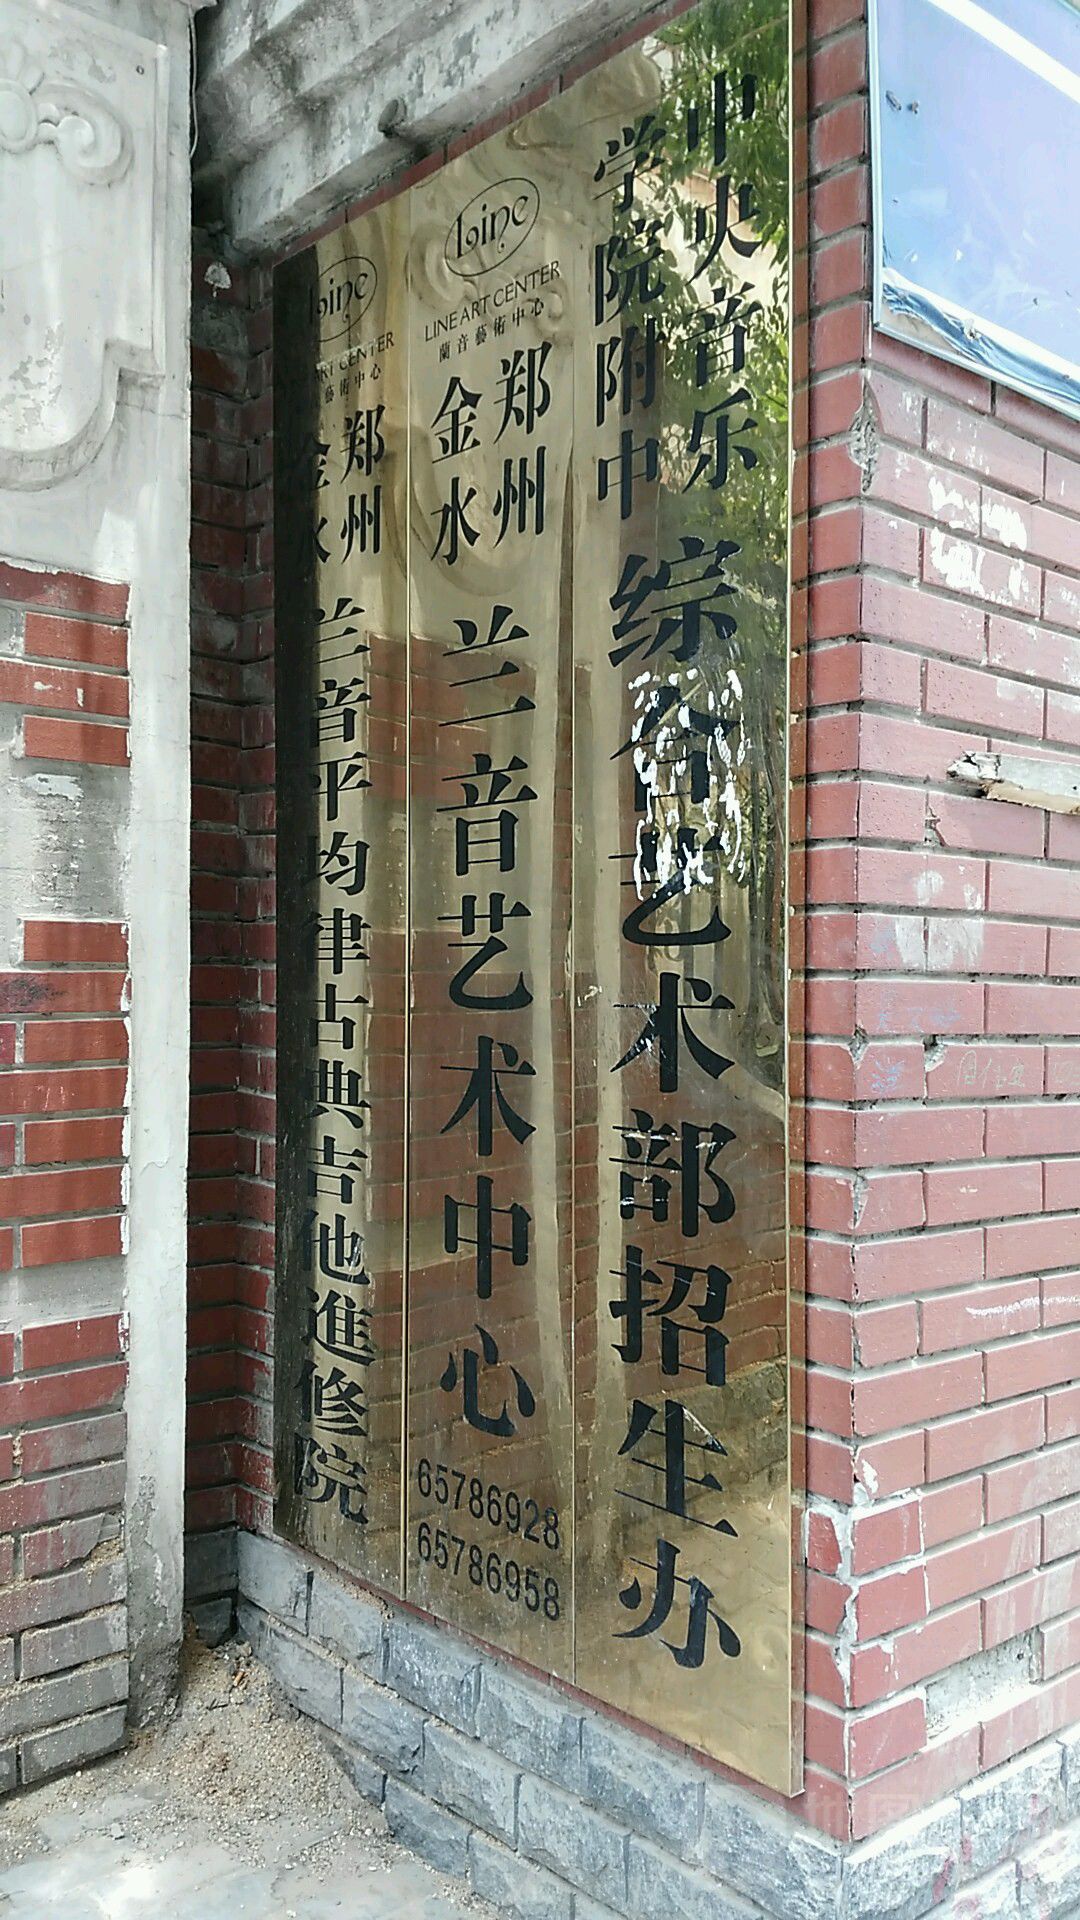 中央音乐
学院附中
综合艺术部招生办
Line
LINE ART CENTER
蘭音藝術中心
郑州
金水
兰音艺术中心
65786928
65786958
Line
ART CENTER
藝術中心
郑州
金水
兰音平均律古典吉他進修院